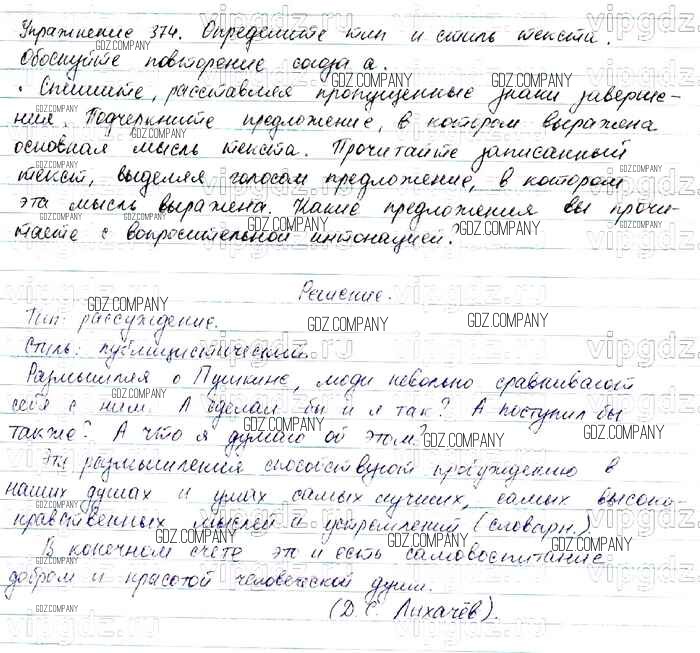 Упражнение 374. Определите тип и стиль текста.
Обоснуйте повторение союза а.
• Спишите, расставляя пропущенные знаки заверше-
ния. Подчеркните предложение, в котором выражена
основная мысль текста. Прочитайте записанный
текст, выделяя голосом предложение, в котором
эта мысль выражена. Какие предложения вы прочи-
таете с вопросительной интонацией?
Решение.
Тип: рассуждение.
Стиль: публицистический.
Размышляя о Пушкине, люди невольно сравнивают
себя с ним. А сделал бы и я так? А поступил бы
также? А что я думаю об этом?
Эти размышления способствуют пробуждению в
наших душах и умах самых лучших, самых высоко-
нравственных мыслей и устремлений (словарн.)
В конечном счёте это и есть самовоспитание
добром и красотой человеческой души.
(Д. С. Лихачёв).